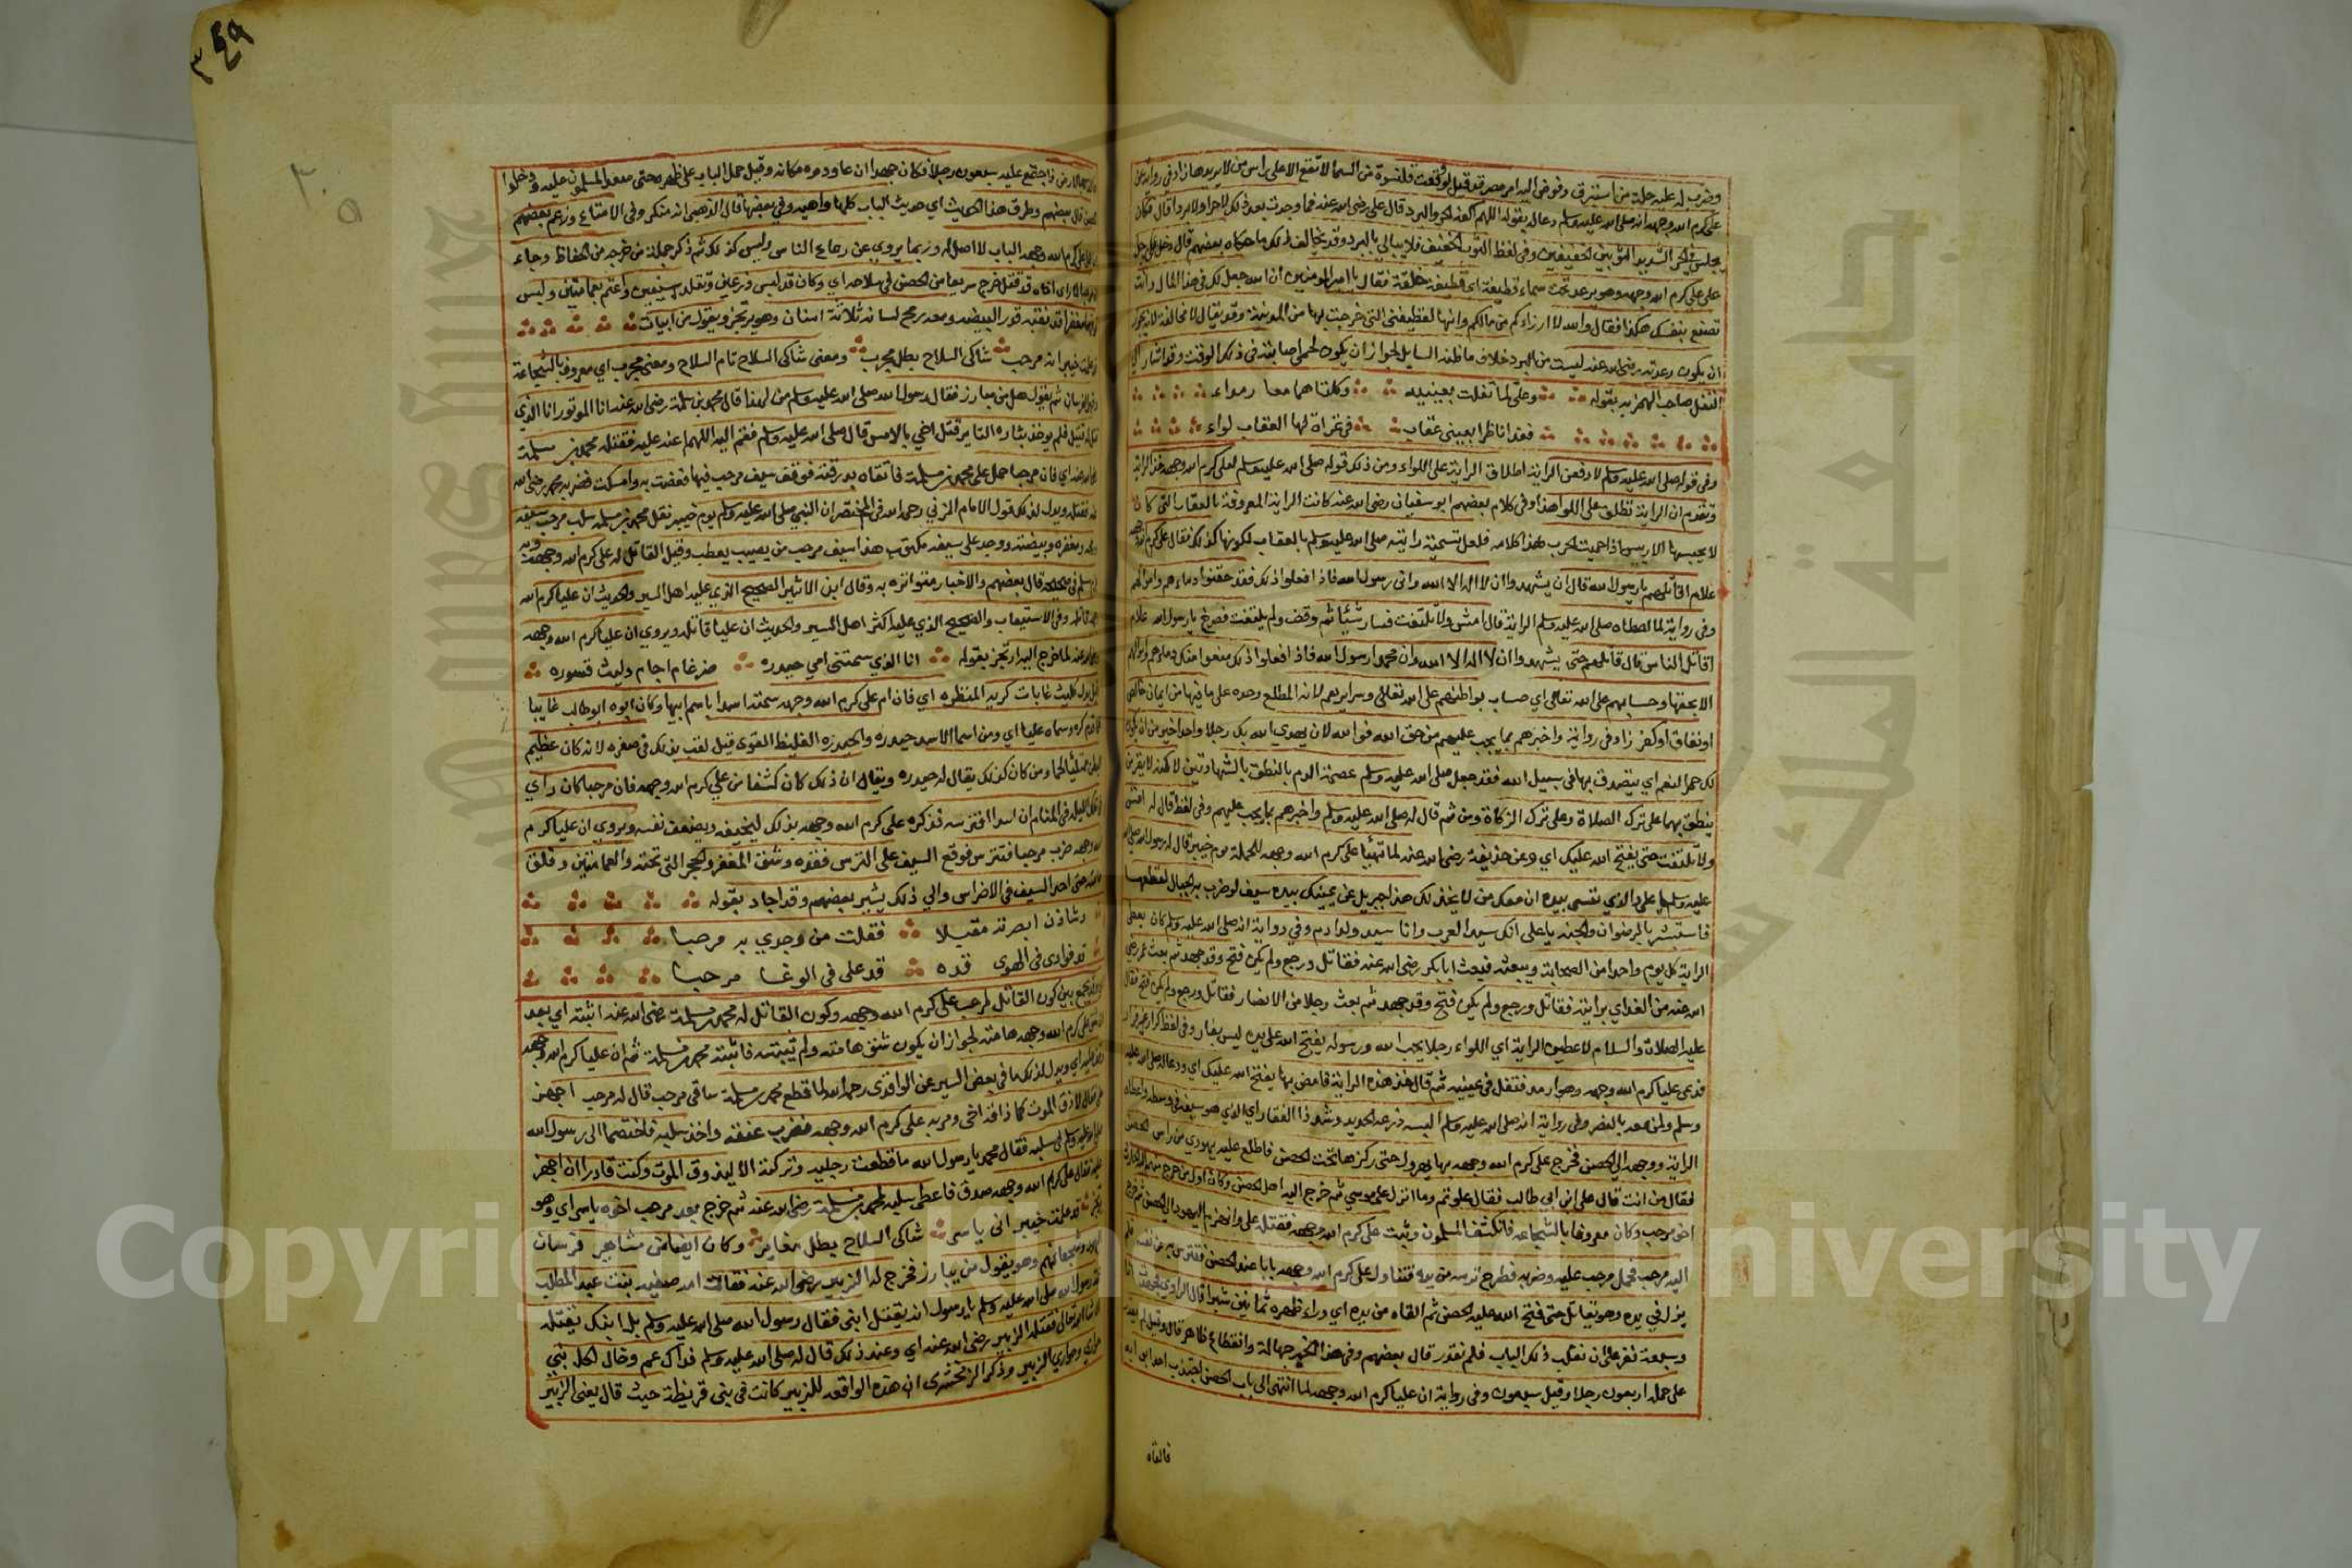 وضرب له عليه حلة من استبرق وفوض اليه امر مصر قد قيل لو وقعت قلنسوة من السما لا تقع الا على راس من لا يريدها زاد في رواية عن
علي كرم الله وجهه انه صلى الله عليه وسلم دعا له بقوله اللهم اكفه الحر والبرد قال علي رضي الله عنه فما وجدت بعد ذلك لا حرا ولا بردا قال فكان
يلبس في الحر الشديد الثوبين الخفيفين وفي لفظ الثوب الخفيف فلا يبالي بالبرد وقد يخالف ذلك ما حكاه بعضهم قال دخل رجل
على علي كرم الله وجهه وهو يرعد تحت سماء قطيفة اي قطيفة خلقة فقال يا امير المومنين ان الله جعل لك في هذا المال وانت
تصنع بنفسك هكذا فقال والله لا ارزاءكم من مالكم وانها لقطيفتي التي خرجت بها من المدينة وقد يقال لا مخالفة لانه يجوز
ان يكون رعدته رضي الله عنه ليست من البرد خلاف ما ظنه السايل لجواز ان يكون لحمى اصابته في ذلك الوقت وقد اشار الى
التفل صاحب الهمزية بقوله وعلي لما تفلت بعينيه وكلتاهما معا رمداء
فغدا ناظرا بعيني عقاب في غزاة لها العقاب لواء
وفي قوله صلى الله عليه وسلم لادفعن الراية اطلاق الراية على اللواء ومن ذلك قوله صلى الله عليه وسلم لعلي كرم الله وجهه خذ الراية
وتقدم ان الراية تطلق على اللوا هذا وفي كلام بعضهم ابو سفيان رضي الله عنه كانت الراية المعروفة بالعقاب التي كان
لا يحبسها الا رييس اذا حميت الحرب هذا كلامه فلعل تسمية رايته صلى الله عليه وسلم بالعقاب لكونها كذلك فقال علي كرم الله وجهه
علام اقاتلهم يا رسول الله قال ان يشهدوا ان لا اله الا الله واني رسول الله فاذا فعلوا ذلك فقد حقنوا دماءهم واموالهم
وفي رواية لما اعطاه صلى الله عليه وسلم الراية قال امش ولا تلتفت فسار شيئا ثم وقف ولم يلتفت فصرخ يا رسول الله علام
اقاتل الناس قال قاتلهم حتى يشهدوا ان لا اله الا الله وان محمدا رسول الله فاذا فعلوا ذلك منعوا منك دماءهم واموالهم
الا بحقها وحسابهم على الله تعالى اي حساب بواطنهم على الله تعالى وسرايرهم لانه المطلع وحده على ما فيها من ايمان خالص
او نفاق او كفر زاد في رواية واخبرهم بما يجب عليهم من حق الله فوالله لان يهدي الله بك رجلا واحدا خير من ان تكون
لك حمر النعم اي يتصدق بها في سبيل الله فقد جعل صلى الله عليه وسلم عصمة الدم بالنطق بالشهادتين
ينطق بهما على ترك الصلاة وعلى ترك الزكاة ومن ثم قال له صلى الله عليه وسلم واخبرهم بما يجب عليهم وفي لفظ قال له امش
ولا تلتفت حتى يفتح الله عليك اي وعن حذيفة رضي الله عنه لما تهيا علي كرم الله وجهه للحملة يوم خيبر قال له رسول الله صلى الله
عليه وسلم يا علي والذي نفسي بيده ان معك من لا يخذلك هذا جبريل عن يمينك بيده سيف لو ضرب به الجبال لقطعها
فاستبشر بالرضوان والجنة يا علي انك سيد العرب وانا سيد ولد ادم وفي رواية انه صلى الله عليه وسلم كان يعطي
الراية كل يوم واحدا من الصحابة ويبعثه فبعث ابا بكر رضي الله عنه فقاتل ورجع ولم يكن فتح وقد جهد ثم بعث عمر رضي
الله عنه من الغد اي برايته فقاتل ورجع ولم يكن فتح وقد جهد ثم بعث رجلا من الانصار فقاتل ورجع ولم يكن فتح فقال
عليه الصلاة والسلام لاعطين الراية اي اللواء رجلا يحب الله ورسوله يفتح الله على يده ليس بفار وفي لفظ كرار غير فرار
فدعى عليا كرم الله وجهه وهو ارمد فتفل في عينيه ثم قال خذ هذه الراية فامض بها يفتح الله عليك اي ودعا له صلى الله عليه
وسلم ولمن معه بالنصر وفي رواية انه صلى الله عليه وسلم البسه درعه الحديد وشد ذا الفقار اي الذي هو سيفه في وسطه واعطاه
الراية ووجهه الى الحصن فخرج علي كرم الله وجهه بها يهرول حتى ركزها تحت الحصن فاطلع عليه يهودي من راس الحصن
فقال من انت قال علي ابن ابي طالب فقال علوتم وما انزل على موسي ثم خرج اليه اهل الحصن وكان اول من خرج منهم الحارث
اخو مرحب وكان معروفا بالشجاعه فانكشف المسلمون وثبت علي كرم الله وجهه فقتله علي وانهزم اليهود الى الحصن ثم خرج
اليه مرحب فحمل مرحب عليه وضربه فطرح ترسه من يده فتناول علي كرم الله وجهه بابا عند الحصن فتترس به عن نفسه فلم
يزل في يده وهو يقاتل حتى فتح الله عليه الحصن ثم القاه من يده اي وراء ظهره ثمانين شبرا قال الراوي
وسبعة نفر على ان نقلب ذلك الباب فلم نقدر قال بعضهم وفي هذا الخبر جهالة وانقطاع ظاهر قال وقيل لم يقدر
على حمله اربعون رجلا وقيل سبعون وفي رواية ان عليا كرم الله وجهه لما انتهى الى باب الحصن اجتذب احد ابوابه
فالقاه
٣٤٩
بالارض فاجتمع عليه سبعون رجلا فكان جهدا ان عاودوه مكانه وقيل حمل الباب على ظهره حتى صعد المسلمون عليه ودخلوا
الحصن قال بعضهم وطرق هذا الحديث اي حديث الباب كلها واهيه وفي بعضها قال الذهبي انه منكر وفي الامتاع وزعم بعضهم
ان حمل علي كرم الله وجهه الباب لا اصل له وربما يروي عن رعاع الناس وليس كذلك ثم ذكر جملة من خرجه من الحفاظ وجاء
ان مرحبا لما راى اخاه قد قتل خرج سريعا من الحصن في سلاحه اي وكان قد لبس درعين وتقلد بسيفين واعتم بعمامتين ولبس
فوقهما مغفرا قد ثقبه قدر البيضه ومعه رمح لسانه ثلاثة اسنان وهو يرتجز ويقول من ابيات
قد علمت خيبر اني مرحب شاكي السلاح بطل مجرب ومعنى شاكي السلاح تام السلاح ومعنى مجرب اي معروف بالشجاعة
وقهر الفرسان ثم يقول هل من مبارز فقال رسول الله صلى الله عليه وسلم من لهذا قال محمد بن مسلمة رضي الله عنه انا الموتور انا الذي
قتل له قتيل فلم يوخذ بثاره الثاير قتل اخي بالامس قال صلى الله عليه وسلم فقم اليه اللهم اعنه عليه فقتله محمد بن مسلمة
رضي الله عنه اي فان مرحبا حمل على محمد بن مسلمة فاتقاه بدرقته فوقع سيف مرحب فيها فعضت به وامسكت فضربه محمد رضي الله
عنه فقتله ويدل لذلك قول الامام المزني رحمه الله في المختصر ان النبي صلى الله عليه وسلم يوم خيبر نفل محمد بن مسلمة سلب مرحب سيفه
ورمحه ومغفره وبيضته ووجد على سيفه مكتوب هذا سيف مرحب من يصيب يعطب وقيل القاتل له علي كرم الله وجهه وبه
جزم مسلم في صحيحه قال بعضهم والاخبار متواترة به وقال ابن الاثير الصحيح الذي عليه اهل السير والحديث ان عليا كرم الله
وجهه قاتله وفي الاستيعاب والصحيح الذي عليه اكثر اهل السير والحديث ان عليا قاتله ويروي ان عليا كرم الله وجهه
ورضي عنه لما خرج اليه ارتجز بقوله انا الذي سمتني امي حيدره ضرغام اجام وليث قسوره
كليث غابات كريه المنظره اي فان ام علي كرم الله وجهه سمته اسدا باسم ابيها وكان ابوه ابو طالب غايبا
فلما قدم كره وسماه عليا اي ومن اسما الاسد حيدره والحيدره الغليظ القوي قيل لقب بذلك في صغره لانه كان عظيم
البطن ممتلئا لحما ومن كان كذلك يقال له حيدره ويقال ان ذلك كان كشفا من علي كرم الله وجهه فان مرحبا كان راي
في تلك الليله في المنام ان اسدا افترسه فذكره علي كرم الله وجهه بذلك ليخيفه ويضعف نفسه ويروي ان عليا كرم
الله وجهه ضرب مرحبا فتترس فوقع السيف على الترس فقده وشق المغفر والحجر التي تحته والعمامتين وفلق
هامته حتى اخذ السيف في الاضراس والي ذلك يشير بعضهم وقد اجاد بقوله
وشادن ابصرته مقبلا فقلت من وجدي به مرحبا
قد فوادي في الهوى قده قد علي في الوغا مرحبا
وقد يجمع بين كون القاتل لمرحب علي كرم الله وجهه وكون القاتل له محمد بن مسلمة رضي الله عنه اثبته اي بعد
ان شق علي كرم الله وجهه هامته لجواز ان يكون شق هامته ولم يثبته فاثبته محمد بن مسلمة ثم ان عليا كرم الله وجهه
وقف عليه اي ويدل لذلك ما في بعض السير عن الواقدي رحمه الله لما قطع محمد بن مسلمة ساقي مرحب قال له مرحب اجهز
علي فقال لا ذق الموت كما ذاقه اخي ومر به علي كرم الله وجهه فضرب عنقه واخذ سلبه فاختصما الى رسول الله
صلى الله عليه وسلم في سلبه فقال محمد يا رسول الله ما قطعت رجليه وتركته الا ليذوق الموت وكنت قادرا ان اجهز
عليه فقال علي كرم الله وجهه صدق فاعطى سلبه لمحمد بن مسلمة رضي الله عنه ثم خرج بعد مرحب اخوه ياسر اي وهو
يرتجز قد علمت خيبر اني ياسر شاكي السلاح بطل مغاير وكان ايضا من مشاهير فرسان
اليهود وشجعانهم وهو يقول من يبارز فخرج له الزبير رضي الله عنه فقالت امه صفيه بنت عبد المطلب
لرسول الله صلى الله عليه وسلم يا رسول انه يقتل ابني فقال رسول الله صلى الله عليه وسلم بل ابنك يقتله
ان شا الله تعالى فقتله الزبير رضي الله عنه اي وعند ذلك قال له صلى الله عليه وسلم فداك عم وخال لكل نبي
حواري وحواري الزبير وذكر الزمخشري ان هذه الواقعه للزبير كانت في بني قريظة حيث قال يعني الزبير
Copyright © King Saud University
جامعة الملك سعود